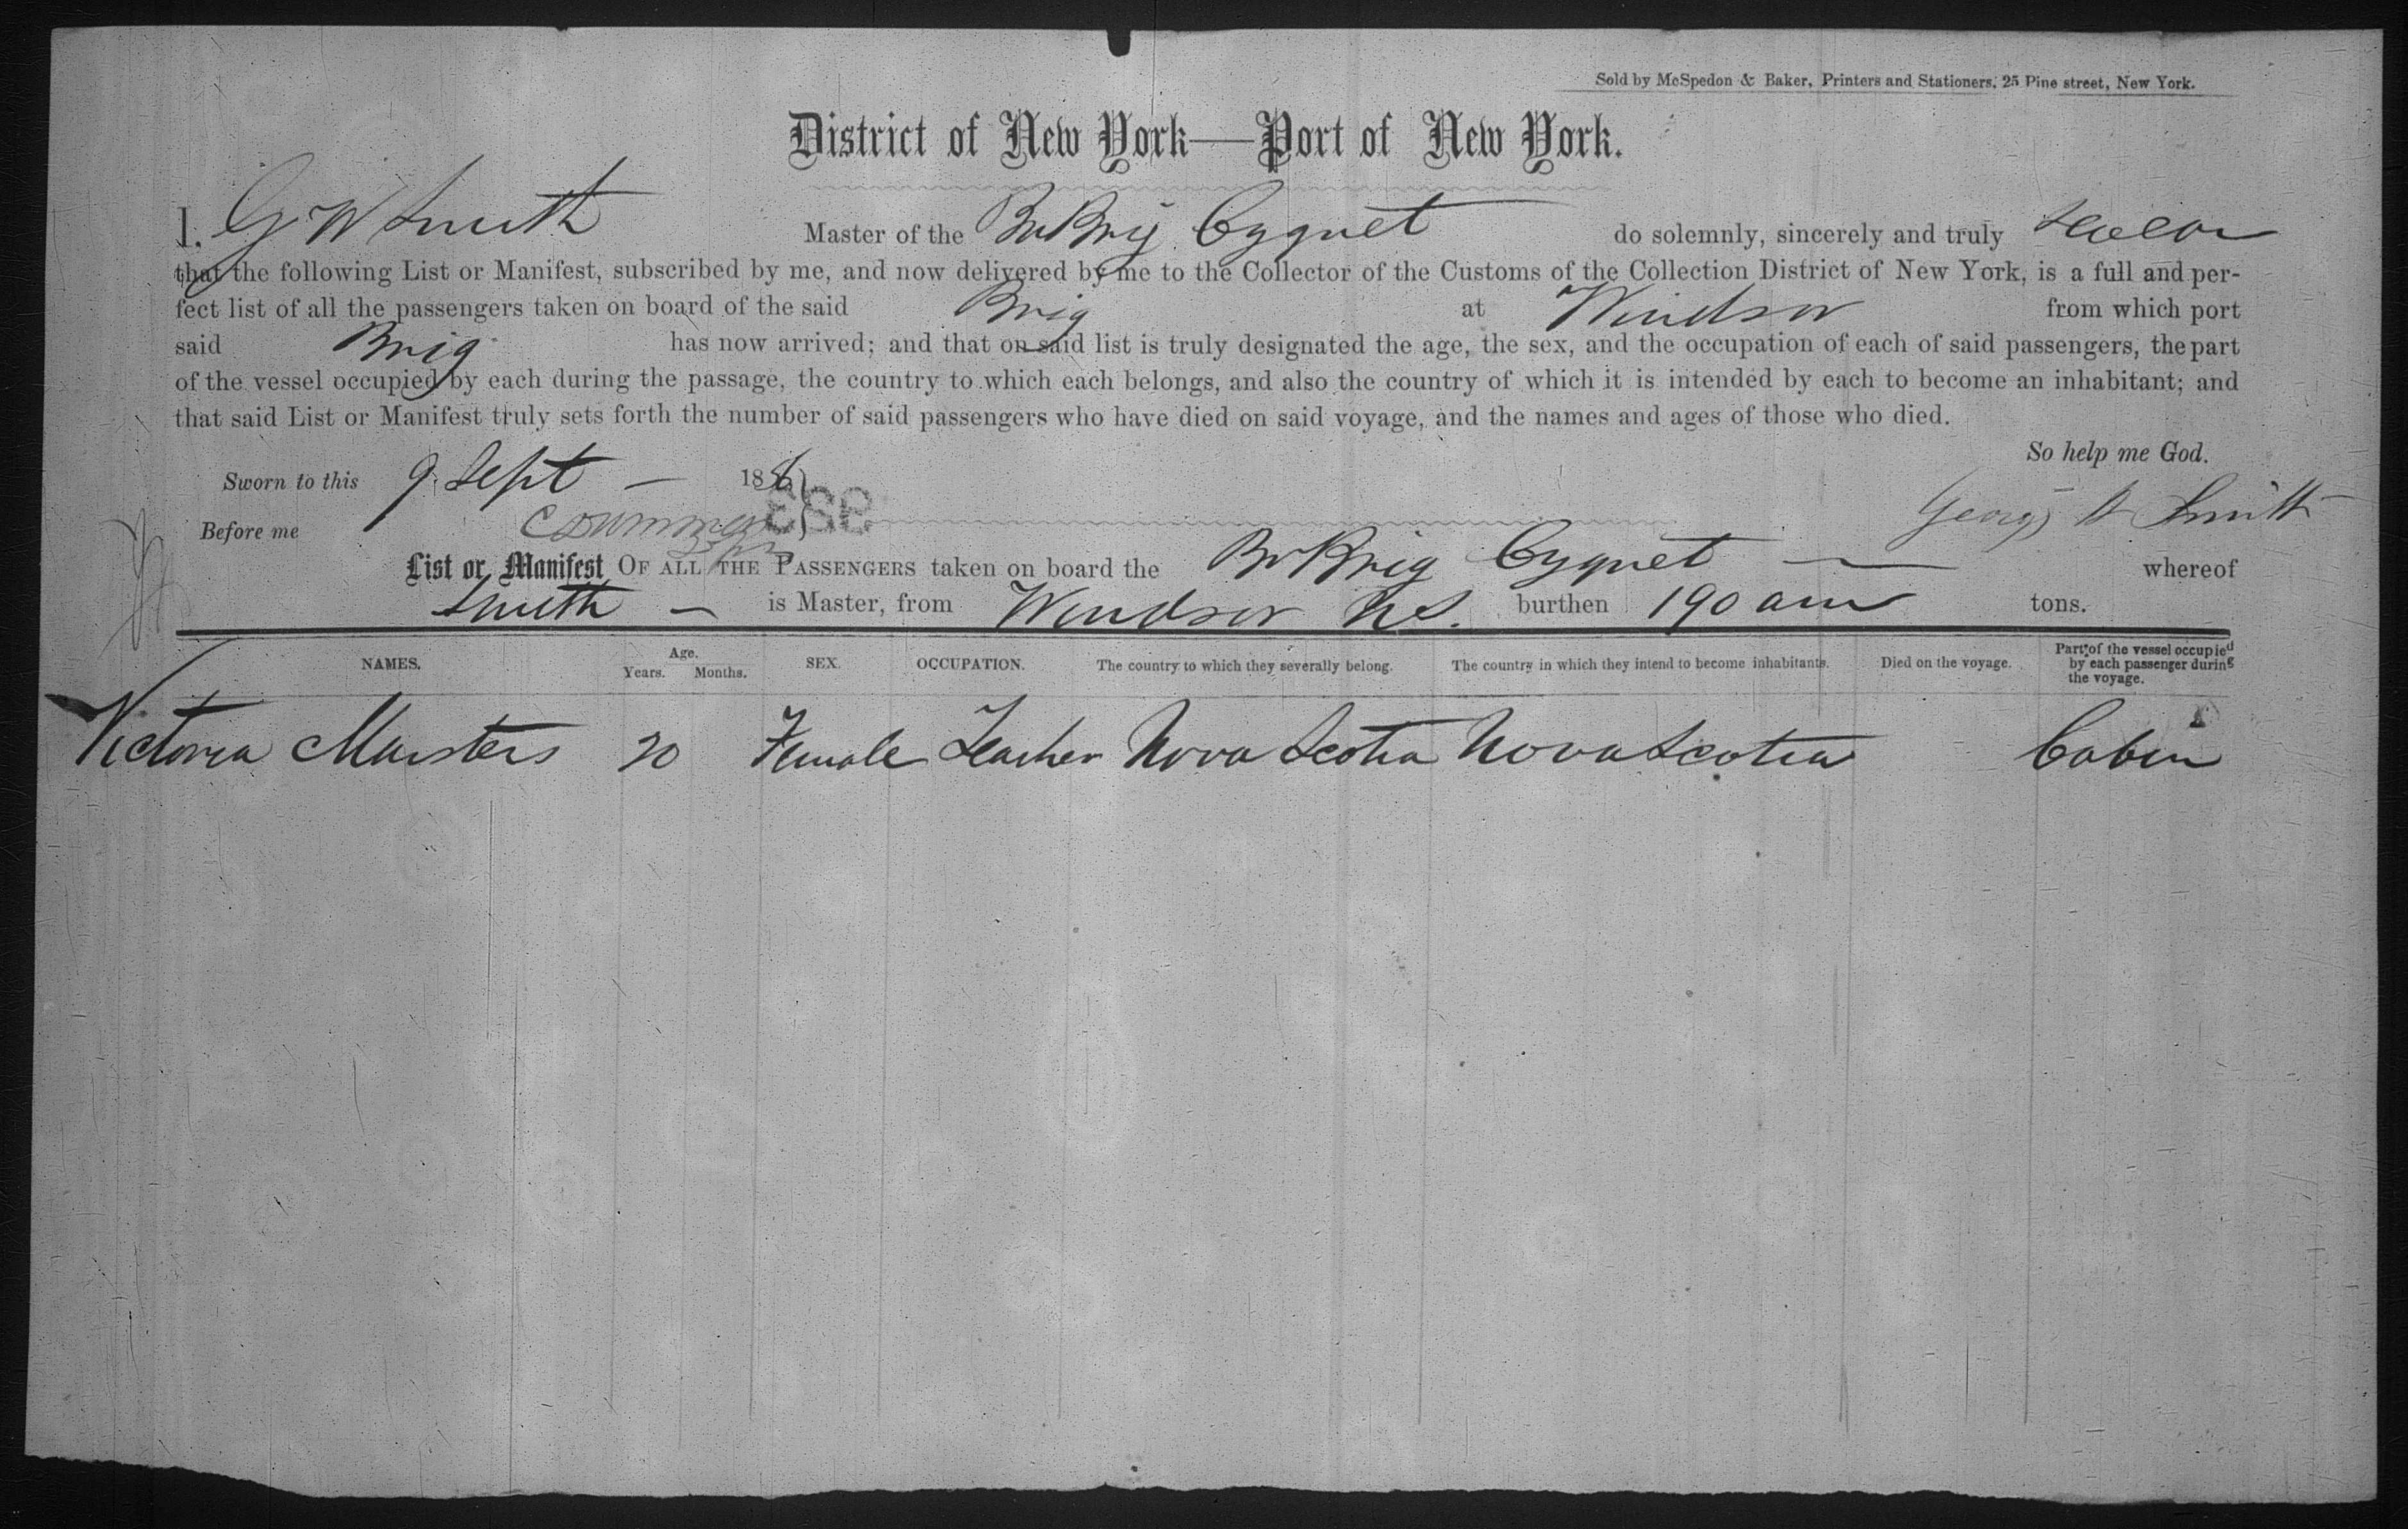 Sold by McSpedon & Baker, Printers and Stationers, 25 Pine street, New York.
District of New York—Port of New York.
I, G W Smith Master of the Br Brig Cygnet do solemnly, sincerely and truly
that the following List or Manifest, subscribed by me, and now delivered by me to the Collector of the Customs of the Collection District of New York, is a full and per-
fect list of all the passengers taken on board of the said Brig at Windsor from which port
said Brig has now arrived; and that on said list is truly designated the age, the sex, and the occupation of each of said passengers, the part
of the vessel occupied by each during the passage, the country to which each belongs, and also the country of which it is intended by each to become an inhabitant; and
that said List or Manifest truly sets forth the number of said passengers who have died on said voyage, and the names and ages of those who died.
So help me God.
Sworn to this 9 Sept — 186
George W Smith
Before me
List or Manifest OF ALL THE PASSENGERS taken on board the Br Brig Cygnet — whereof
Smith — is Master, from Windsor N.S. burthen 190 tons.
NAMES. Age. Years. Months. SEX. OCCUPATION. The country to which they severally belong. The country in which they intend to become inhabitants. Died on the voyage. Part of the vessel occupied by each passenger during the voyage.
Victoria Marsters 20 Female Teacher Nova Scotia Nova Scotia Cabin